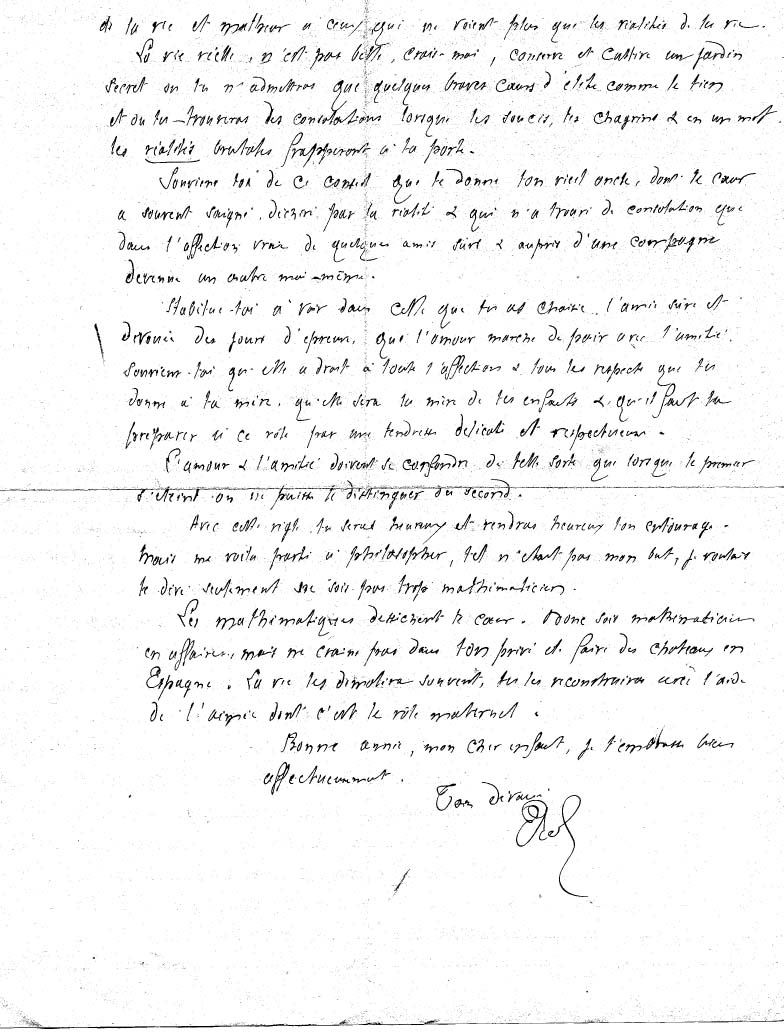 de la vie et malheur à ceux qui ne voient plus que les réalités de la vie.
La vie réelle, n'est pas belle, crois-moi, conserve et cultive un jardin
secret où tu n'admettras que quelques braves cœurs d'élite comme le tien
et où tu trouveras des consolations lorsque les soucis, les chagrins & en un mot
les réalités brutales frapperont à ta porte.
Souviens toi de ce conseil que te donne ton vieil oncle, dont le cœur
a souvent saigné, déchiré par la réalité & qui n'a trouvé de consolation que
dans l'affection vraie de quelques amis sûrs & auprès d'une compagne
devenue un autre moi-même.
Habitue-toi à voir dans celle que tu as choisie, l'amie sûre et
dévouée des jours d'épreuve, que l'amour marche de pair avec l'amitié.
Souviens-toi qu'elle a droit à toute l'affection & tous les respects que tu
donne à ta mère, qu'elle sera la mère de tes enfants & qu'il faut la
préparer à ce rôle par une tendresse délicate et respectueuse.
L'amour & l'amitié doivent se confondre de telle sorte que lorsque le premier
s'éteint on ne puisse le distinguer du second.
Avec cette règle tu seras heureux et rendras heureux ton entourage.
Mais me voilà parti à philosopher, tel n'était pas mon but, je voulais
te dire seulement ne sois pas trop mathématicien.
Les mathématiques dessèchent le cœur. Donc sois mathématicien
en affaires, mais ne crains pas dans ton privé de faire des chateaux en
Espagne. La vie les démolira souvent, tu les reconstruiras avec l'aide
de l'aimée dont c'est le rôle maternel.
Bonne année, mon cher enfant, je t'embrasse bien
affectueusement.
Ton dévoué